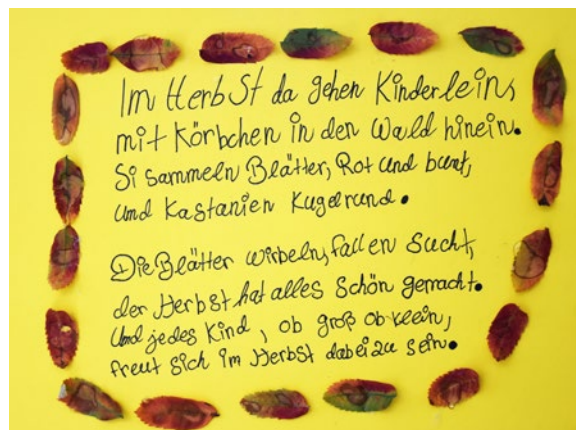 Im Herbst da gehen Kinderlein,
mit Körbchen in den Wald hinein.
Si sammeln Blätter, Rot und bunt,
und Kastanien Kugelrund.
Die Blätter wirbeln, fallen sucht,
der Herbst hat alles Schön gemacht.
Und jedes Kind, ob groß ob klein,
freut sich im Herbst dabei zu sein.